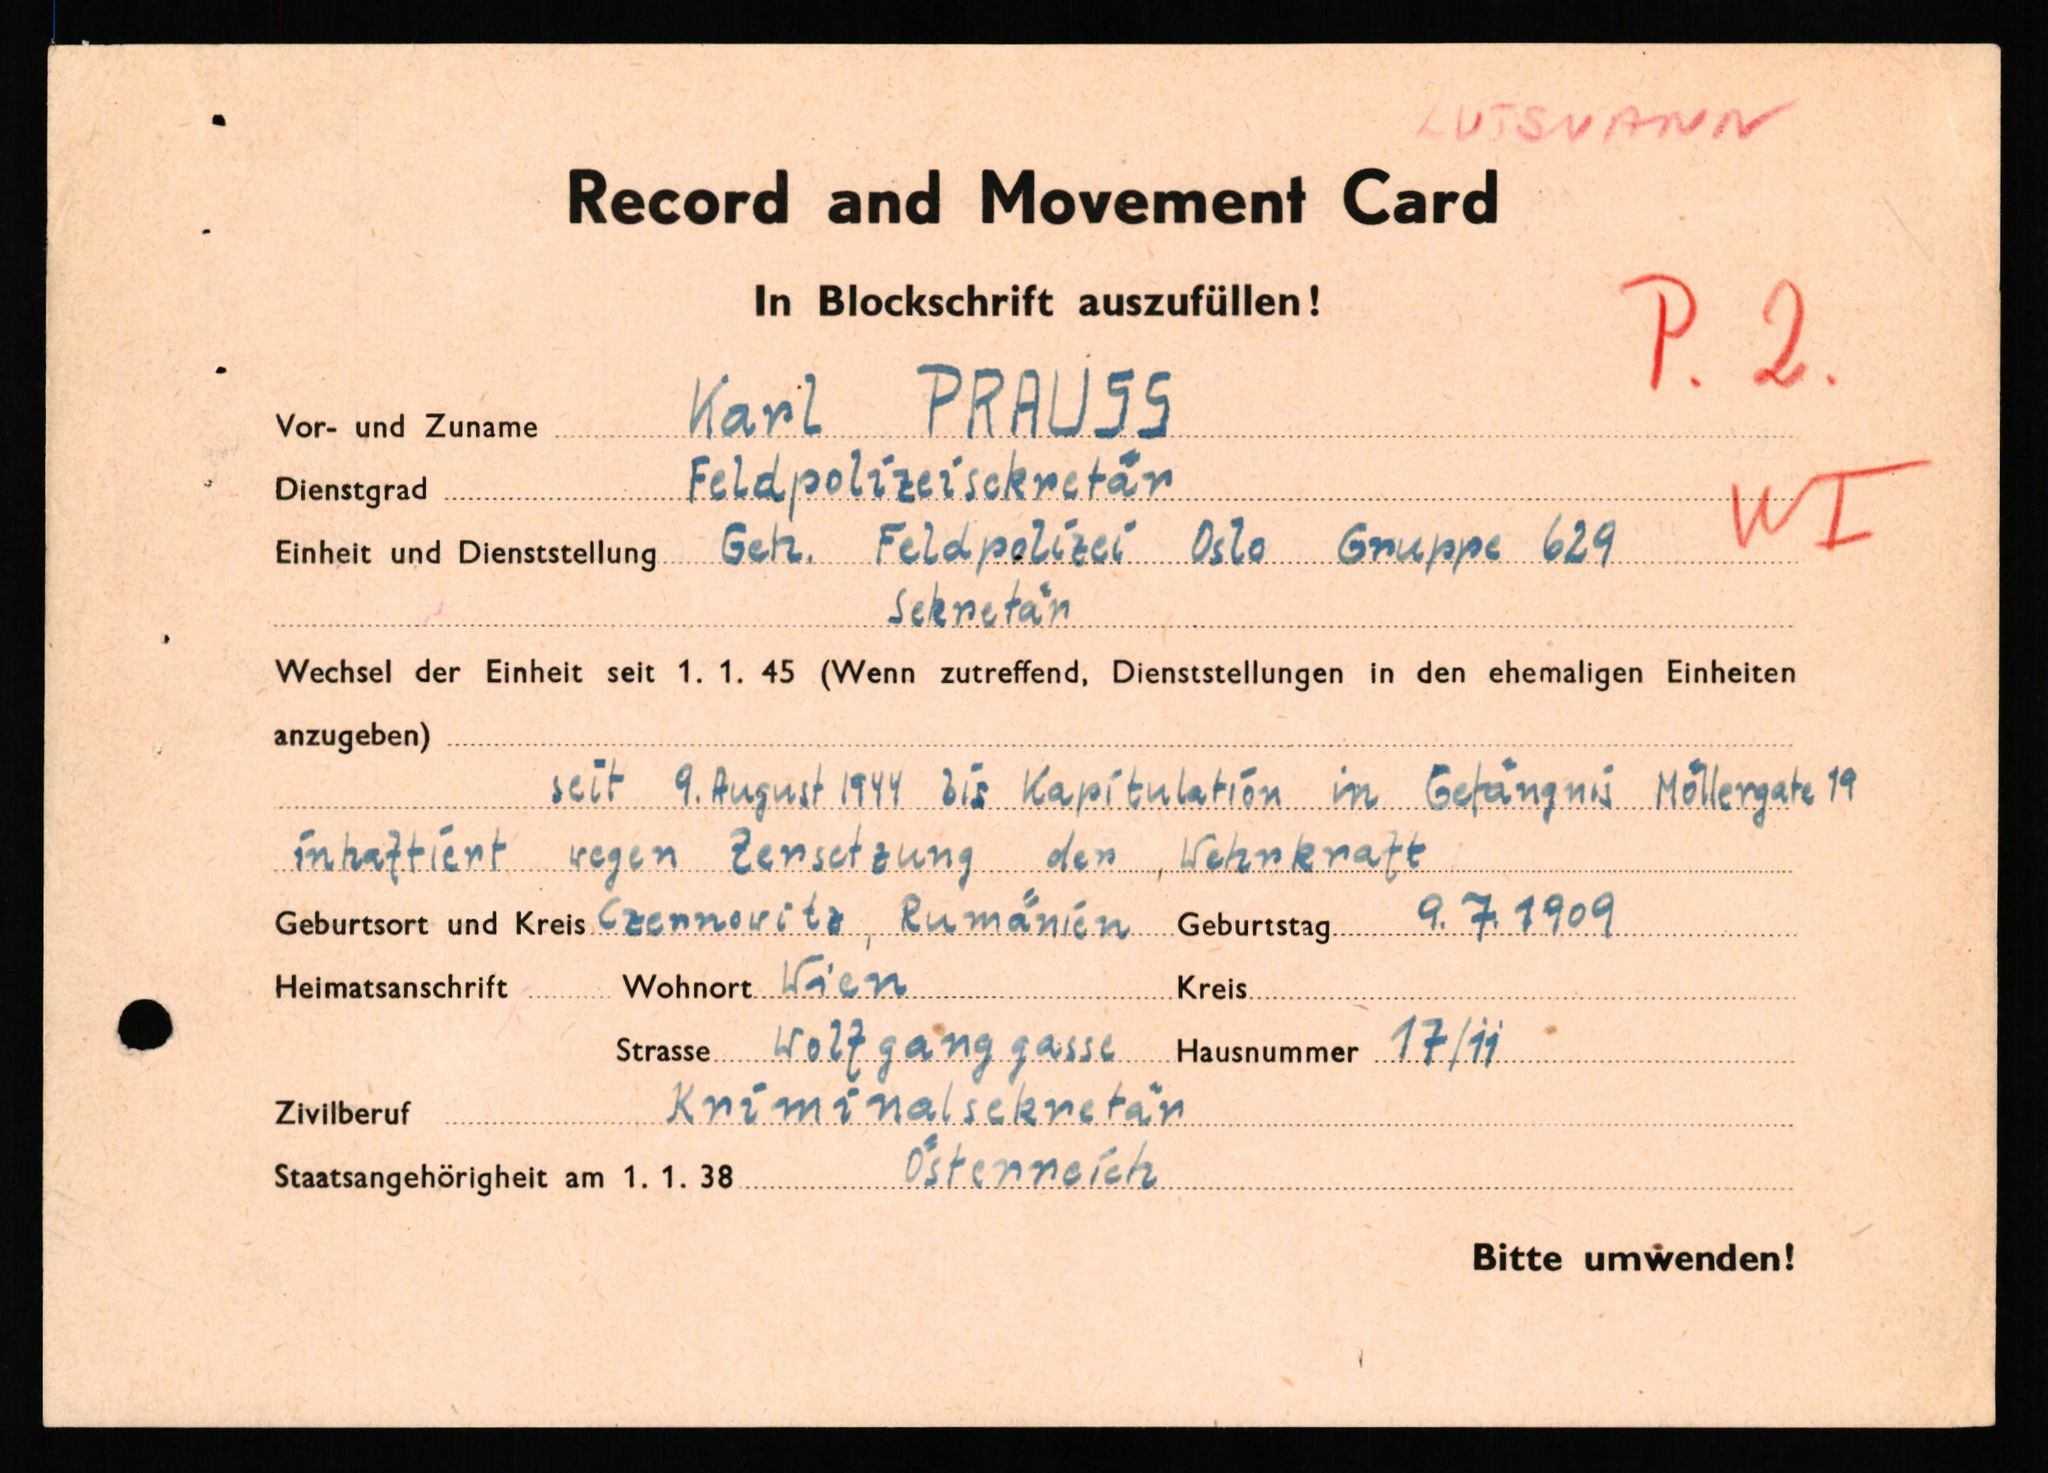 Record and Movement Card
In Blockschrift auszufüllen!
P. 2.
Vor- und Zuname Karl PRAUSS
Dienstgrad Feldpolizeisekretär
WI
Einheit und Dienststellung Geh. Feldpolizei Oslo Gruppe 629
Sekretär
Wechsel der Einheit seit 1. 1. 45 (Wenn zutreffend, Dienststellungen in den ehemaligen Einheiten
anzugeben)
seit 9. August 1944 bis Kapitulation in Gefängnis Möllergate 19
inhaftiert wegen Zersetzung der Wehrkraft
Geburtsort und Kreis Czernowitz, Rumänien Geburtstag 9. 7. 1909
Heimatsanschrift Wohnort Wien Kreis
Strasse Wolfganggasse Hausnummer 17/11
Zivilberuf Kriminalsekretär
Staatsangehörigheit am 1. 1. 38 Österreich
Bitte umwenden!